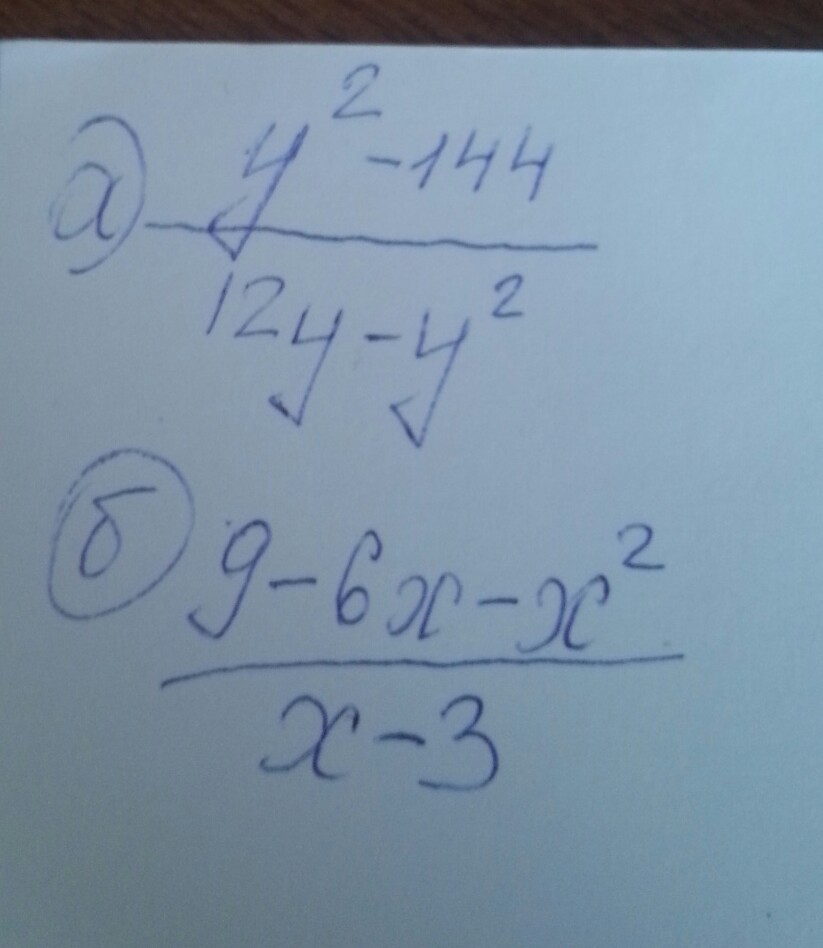 а) y² - 144
12y - y²
б) 9 - 6x - x²
x - 3